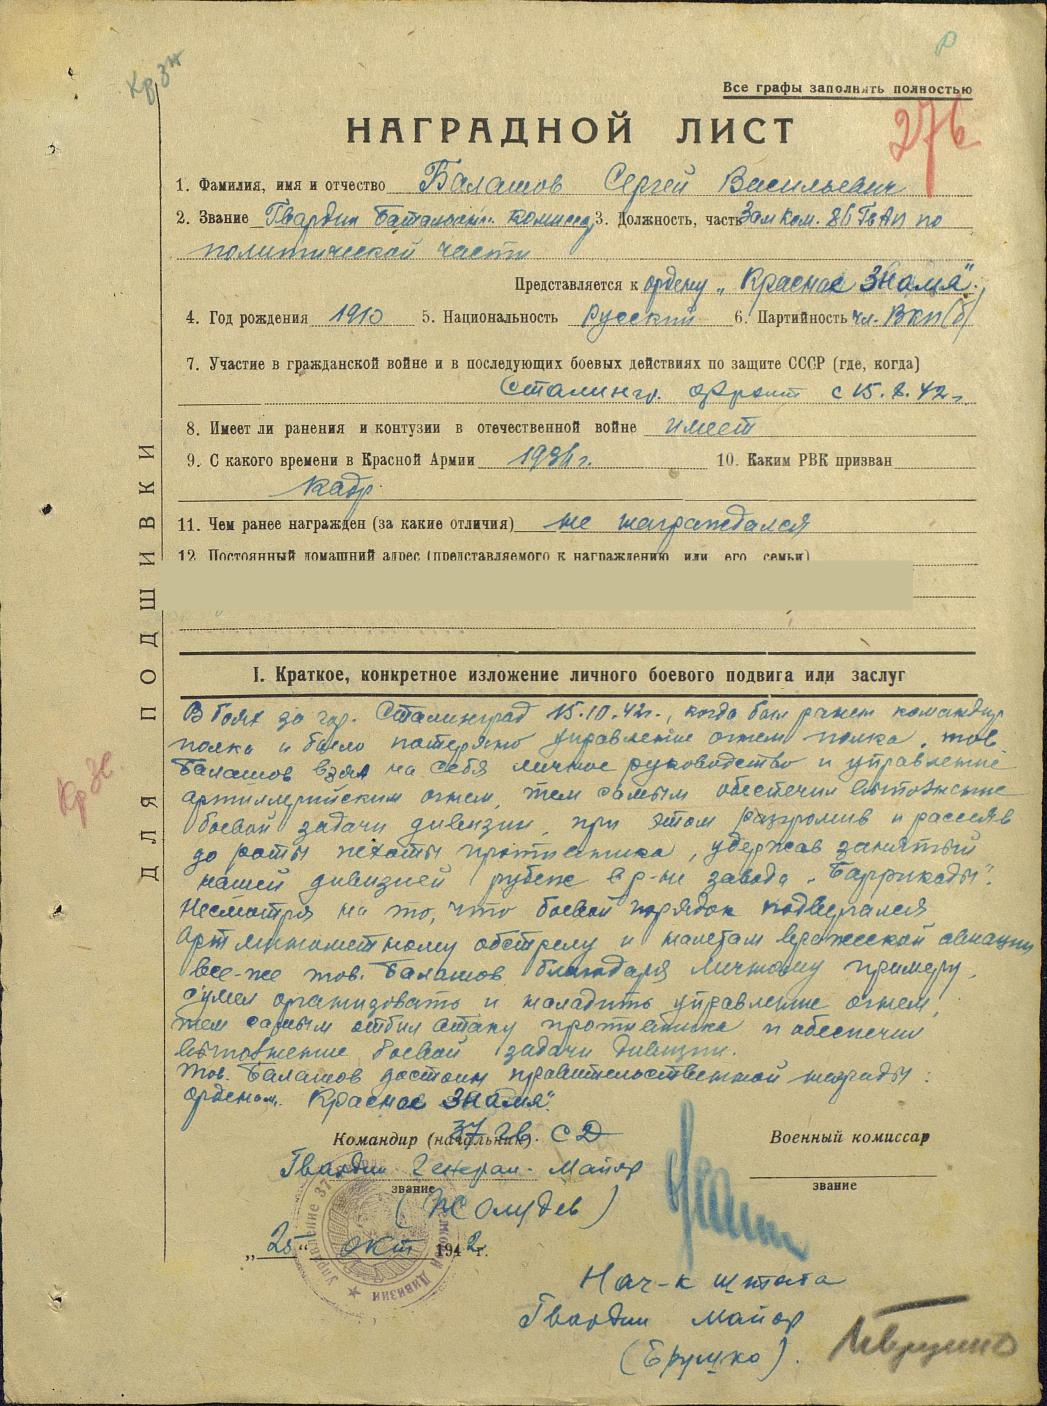 Кр зн
Все графы заполнять полностью
276
НАГРАДНОЙ ЛИСТ
1. Фамилия, имя и отчество Балашов Сергей Васильевич
2. Звание Гвардии Батальон. комиссар 3. Должность, часть Зам Ком. 86 ГвАП по
политической части
Представляется к ордену „Красное Знамя".
4. Год рождения 1910 5. Национальность Русский 6. Партийность чл. ВКП(б)
7. Участие в гражданской войне и в последующих боевых действиях по защите СССР (где, когда)
Сталингр. фронт с 15.8.42 г.
8. Имеет ли ранения и контузии в отечественной войне имеет
9. С какого времени в Красной Армии 1936 г. 10. Каким РВК призван
кадр.
11. Чем ранее награжден (за какие отличия) не награждался
12. Постоянный домашний адрес (представляемого к награждению или его семьи)
ДЛЯ ПОДШИВКИ
I. Краткое, конкретное изложение личного боевого подвига или заслуг
В боях за гор. Сталинград 15.10.42г., когда был ранен командир
полка и было потеряно управление огнем полка, тов.
Балашов взял на себя личное руководство и управление
артиллерийским огнем, тем самым обеспечил выполнение
боевой задачи дивизии, при этом разгромив и рассеяв
до роты пехоты противника, удержав занятый
нашей дивизией рубеж в р-не завода „Баррикады".
Несмотря на то, что боевой порядок подвергался
артминометному обстрелу и налетам вражеской авиации
все-же тов. Балашов благодаря личному примеру,
сумел организовать и наладить управление огнем,
тем самым отбил атаку противника и обеспечил
выполнение боевой задачи дивизии.
Тов. Балашов достоин правительственной награды:
орденом „Красное Знамя".
Кр Зн.
Командир (начальник) 37 гв. СД
Военный комиссар
Гвардии Генерал-Майор
звание
звание
(Жолудев)
„25" окт 1942 г.
Нач-к штаба
Гвардии майор
(Брушко).